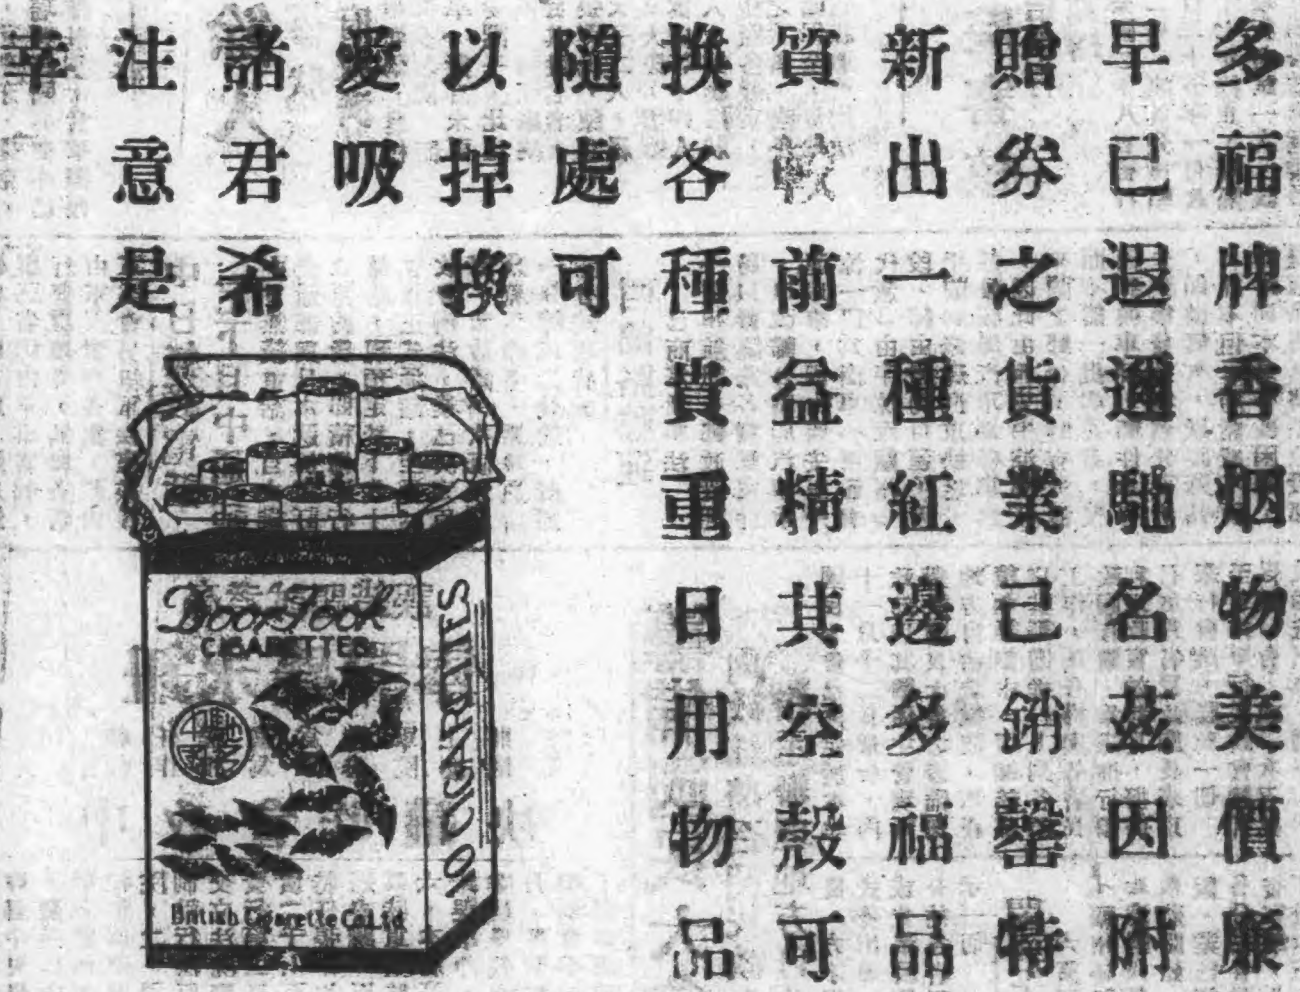 多福牌香烟物美價廉
早已遐邇馳名茲因附
贈劵之貨業己銷罄特
新出一種紅邊多福品
質較前益精其空殼可
換各種貴重日用物品
隨處可
以掉換
愛吸
諸君希
注意是
幸
CIGARETTES
10 CIGARETTES
British Cigarette Co Ltd